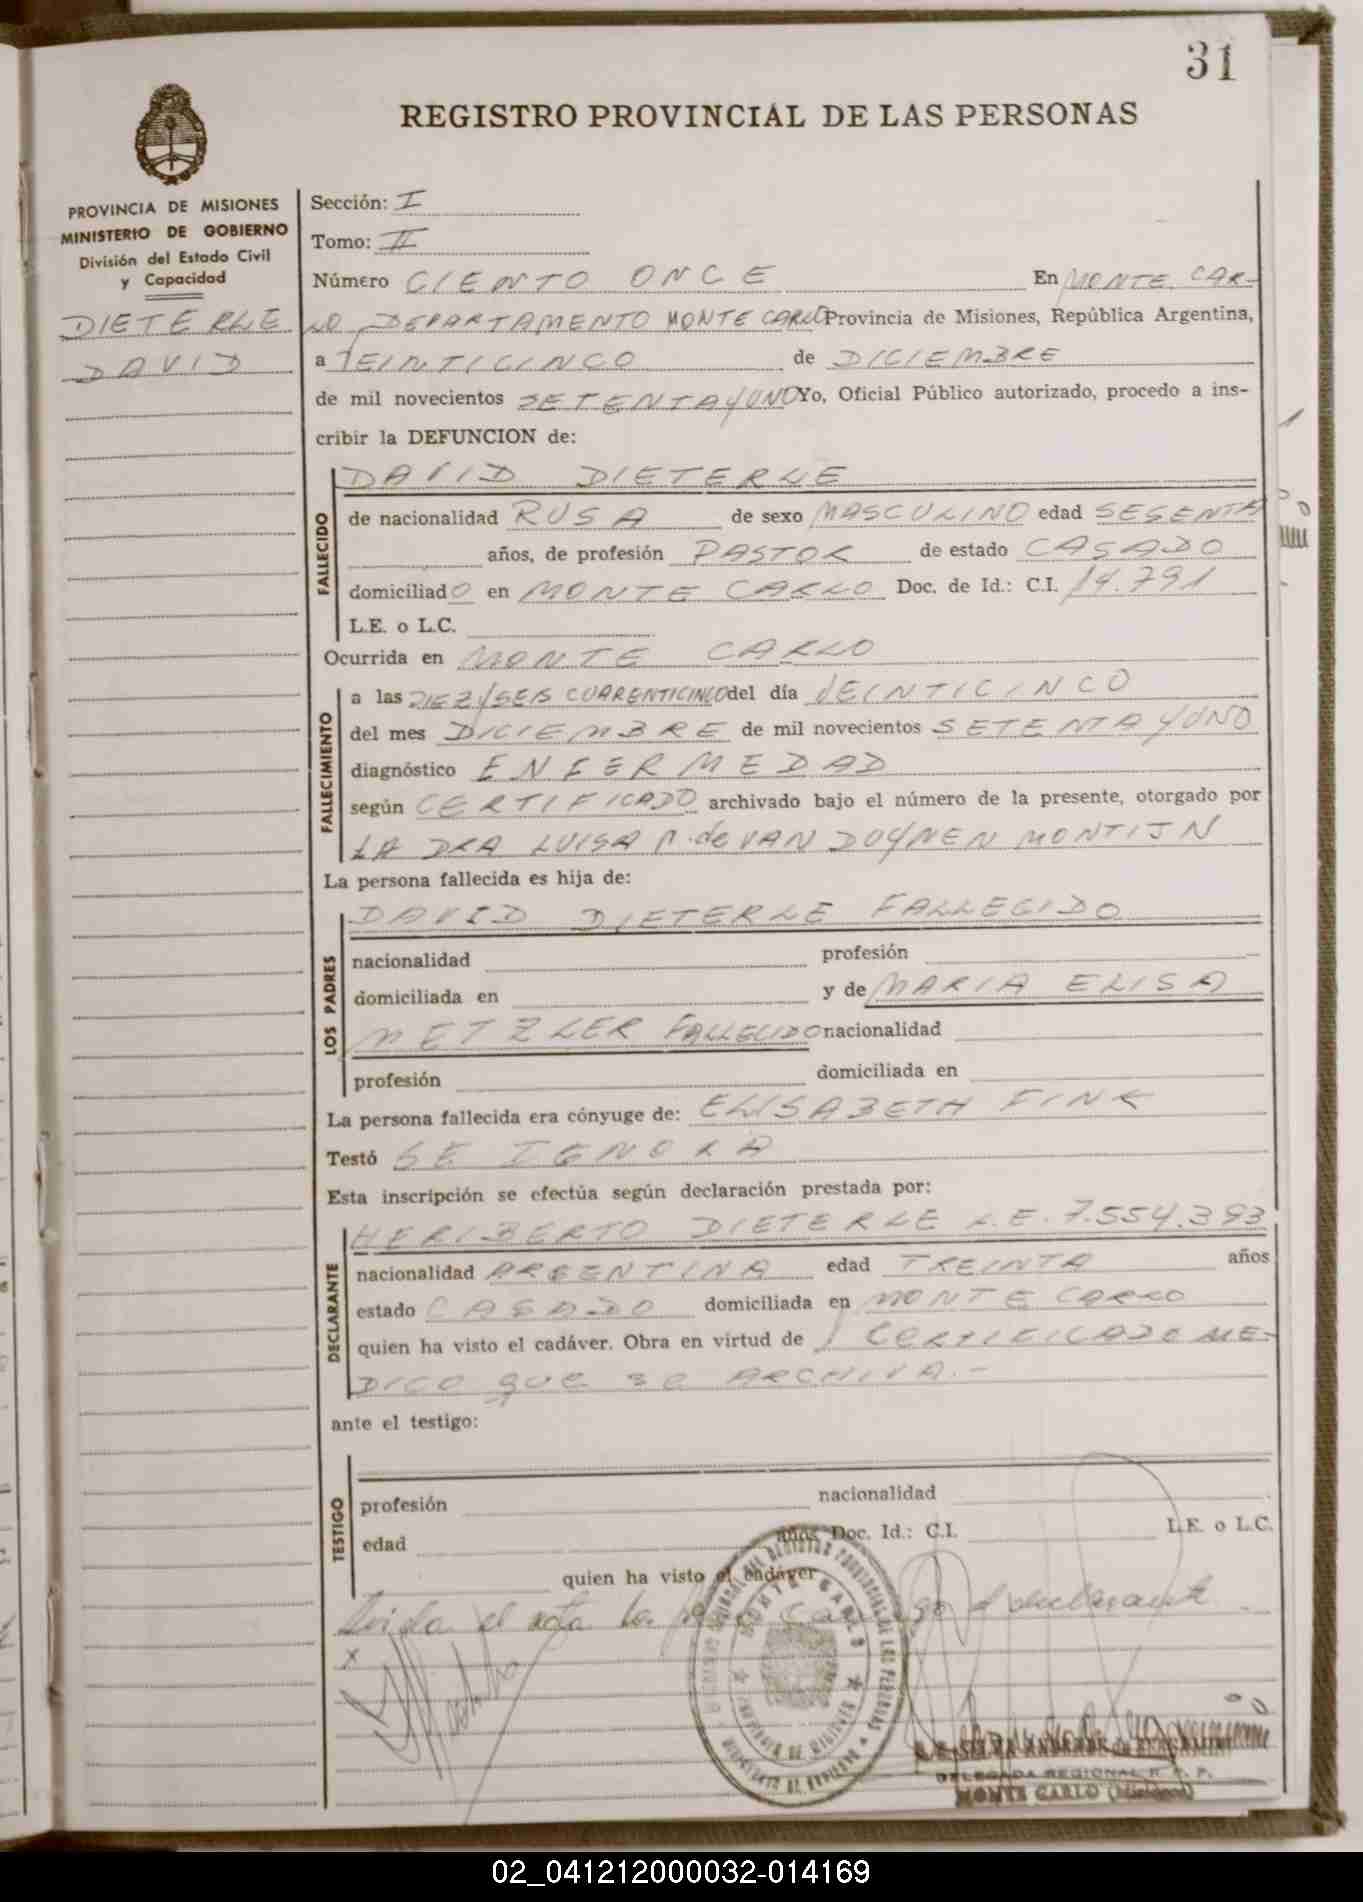 31
REGISTRO PROVINCIAL DE LAS PERSONAS
PROVINCIA DE MISIONES
MINISTERIO DE GOBIERNO
División del Estado Civil
y Capacidad
DIETERLE
DAVID
Sección: I
Tomo: II
Número CIENTO ONCE En MONTE CAR-
LO DEPARTAMENTO MONTE CARLO Provincia de Misiones, República Argentina,
a VEINTICINCO de DICIEMBRE
de mil novecientos SETENTAYUNO Yo, Oficial Público autorizado, procedo a ins-
cribir la DEFUNCION de:
FALLECIDO
DAVID DIETERLE
de nacionalidad RUSA de sexo MASCULINO edad SESENTA
años, de profesión PASTOR de estado CASADO
domiciliado en MONTE CARLO Doc. de Id.: C.I. 14.791
L.E. o L.C.
Ocurrida en MONTE CARLO
FALLECIMIENTO
a las DIEZYSEIS CUARENTICINCO del día VEINTICINCO
del mes DICIEMBRE de mil novecientos SETENTAYUNO
diagnóstico ENFERMEDAD
según CERTIFICADO archivado bajo el número de la presente, otorgado por
LA DRA LUISA de VAN DUYNEN MONTIJN
La persona fallecida es hija de:
LOS PADRES
DAVID DIETERLE FALLECIDO
nacionalidad profesión
domiciliada en y de MARIA ELISA
METZLER FALLECIDO nacionalidad
profesión domiciliada en
La persona fallecida era cónyuge de: ELISABETH FINK
Testó SE IGNORA
Esta inscripción se efectúa según declaración prestada por:
DECLARANTE
HERIBERTO DIETERLE L.E. 7.554.393
nacionalidad ARGENTINA edad TREINTA años
estado CASADO domiciliada en MONTE CARLO
quien ha visto el cadáver. Obra en virtud de CERTIFICADO ME-
DICO QUE SE ARCHIVA.-
ante el testigo:
TESTIGO
profesión nacionalidad
edad años Doc. Id.: C.I. L.E. o L.C.
quien ha visto el cadáver
Leida el acta la conmigo el declarante
X
MONTE CARLO
PROVINCIA DE MISIONES
DELEGADA REGIONAL R. P. P.
MONTE CARLO (Misiones)
02_041212000032-014169